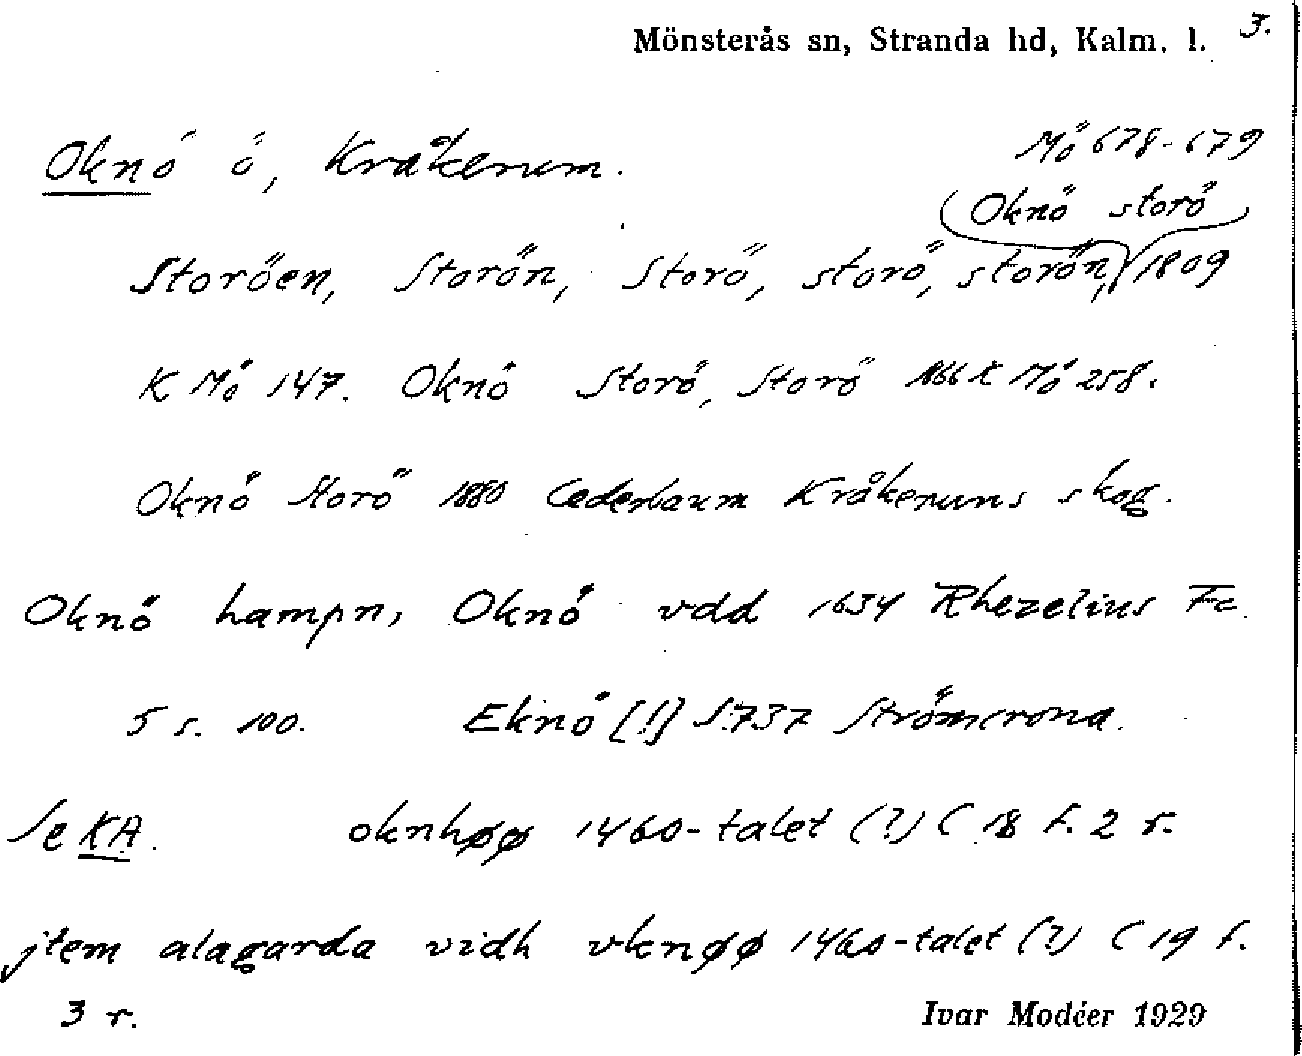 Mönsterås sn, Stranda hd, Kalm. l. 3.
Oknö ö, Kråkerum. Mö 678-679
Oknö storö
Storöen, Storön, Storö, storö, storön, 1809
K Mö 147. Oknö Storö, Storö 1866 K Mö 258.
Oknö Storö 1880 Cederbaum Kråkerums skog.
Oknö hampn, Oknö vdd 1634 Rhezelius Fc.
5 s. 100. Eknö [!] 1737 Strömcrona.
Se KA. oknhøø 1460-talet (?) C 18 f. 2 r.
jtem alagarda vidh vknøø 1460-talet (?) C 19 f.
3 r. Ivar Modéer 1929